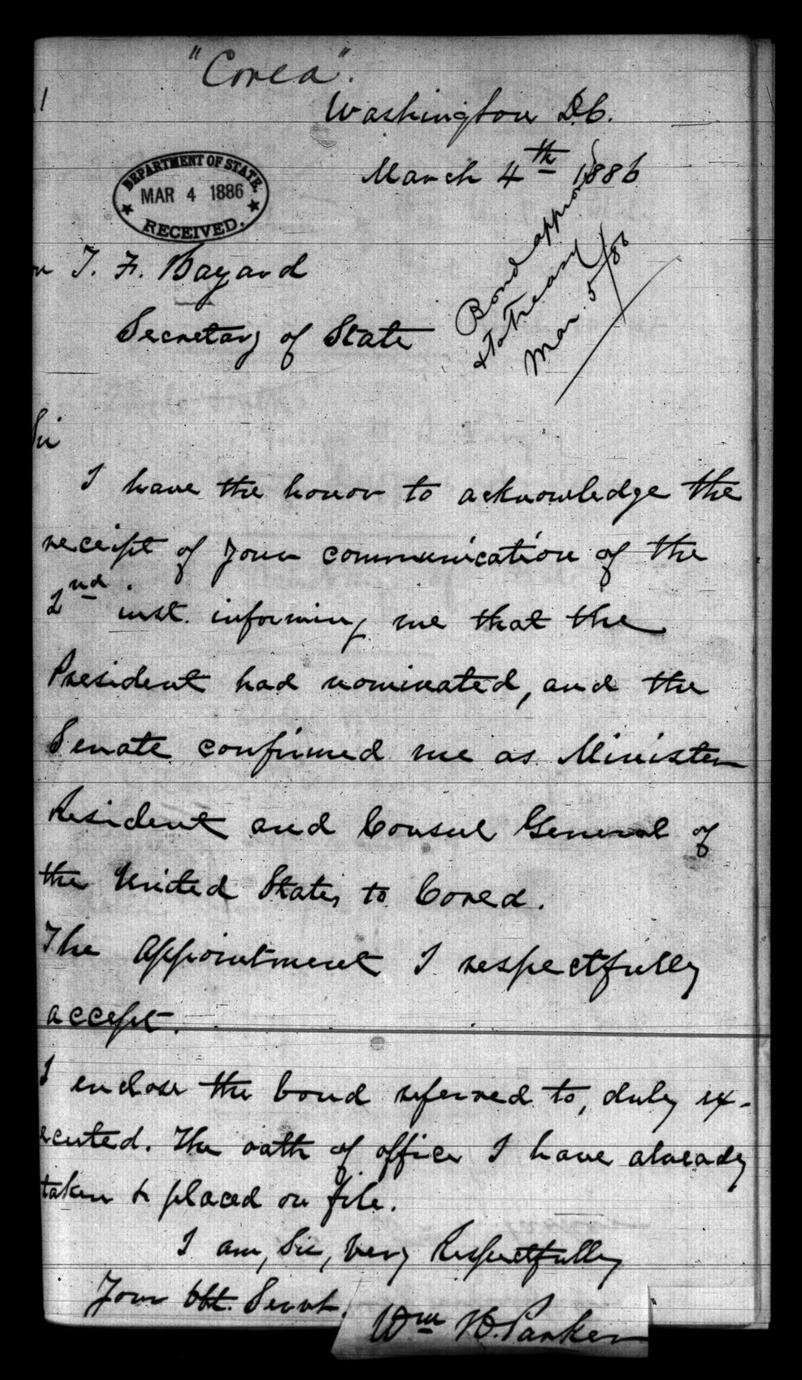 "Corea".
Washington D.C.
March 4th 1886
DEPARTMENT OF STATE.
MAR 4 1886
RECEIVED.
Bond approv
& to Treasy
Mar. 5/86
T. F. Bayard
Secretary of State
Sir
I have the honor to acknowledge the
receipt of your communication of the
2nd inst. informing me that the
President had nominated, and the
Senate confirmed me as Minister
Resident and Consul General of
the United States to Corea.
The appointment I respectfully
accept.
I enclose the bond referred to, duly ex-
ecuted. The oath of office I have already
taken & placed on file.
I am, Sir, Very Respectfully
Your obt. Servt.
Wm H. Parker